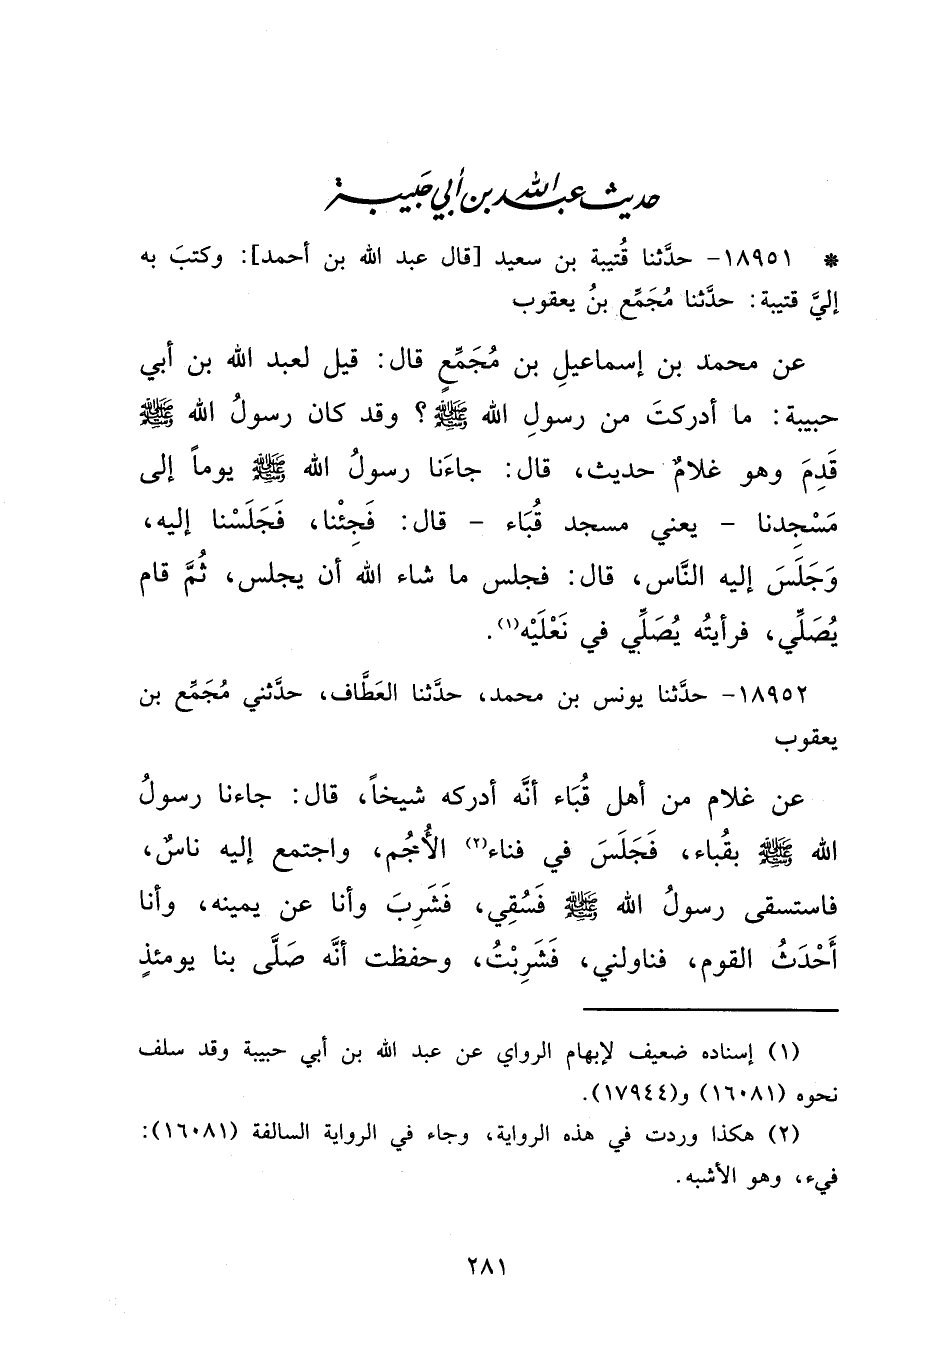 حديث عبد الله بن أبي حَبيبة
* ١٨٩٥١- حدَّثنا قُتيبة بن سعيد [قال عبد الله بن أحمد]: وكتبَ به
إليَّ قتيبة: حدَّثنا مُجَمِّع بنُ يعقوب
عن محمد بن إسماعيلِ بن مُجَمِّعٍ قال: قيل لعبد الله بن أبي
حبيبة: ما أدركتَ من رسولِ الله ﷺ؟ وقد كان رسولُ الله ﷺ
قَدِمَ وهو غلامٌ حديث، قال: جاءَنا رسولُ الله ﷺ يوماً إلى
مَسْجِدنا - يعني مسجد قُبَاء - قال: فَجِئْنا، فَجَلَسْنا إليه،
وَجَلَسَ إليه النَّاس، قال: فجلس ما شاء الله أن يجلس، ثُمَّ قام
يُصَلِّي، فرأيتُه يُصَلِّي في نَعْلَيْه(١).
١٨٩٥٢- حدَّثنا يونس بن محمد، حدَّثنا العَطَّاف، حدَّثني مُجَمِّع بن
يعقوب
عن غلام من أهل قُبَاء أنَّه أدركه شيخاً، قال: جاءنا رسولُ
الله ﷺ بقُباء، فَجَلَسَ في فناء(٢) الأُجُم، واجتمع إليه ناسٌ،
فاستسقى رسولُ الله ﷺ فَسُقِي، فَشَرِبَ وأنا عن يمينه، وأنا
أَحْدَثُ القوم، فناولني، فَشَرِبْتُ، وحفظت أنَّه صَلَّى بنا يومئذٍ
(١) إسناده ضعيف لإبهام الرواي عن عبد الله بن أبي حبيبة وقد سلف
نحوه (١٦٠٨١) و(١٧٩٤٤).
(٢) هكذا وردت في هذه الرواية، وجاء في الرواية السالفة (١٦٠٨١):
فيء، وهو الأشبه.
٢٨١